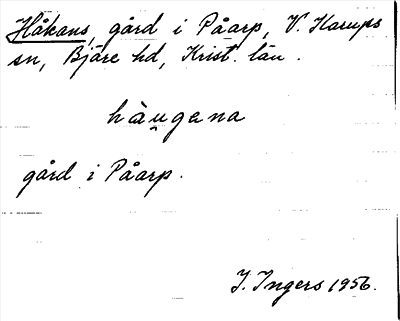 Håkans, gård i Påarp, V. Karups
sn, Bjäre hd, Krist. län.
hàu̯gana
gård i Påarp.
I. Ingers 1956.